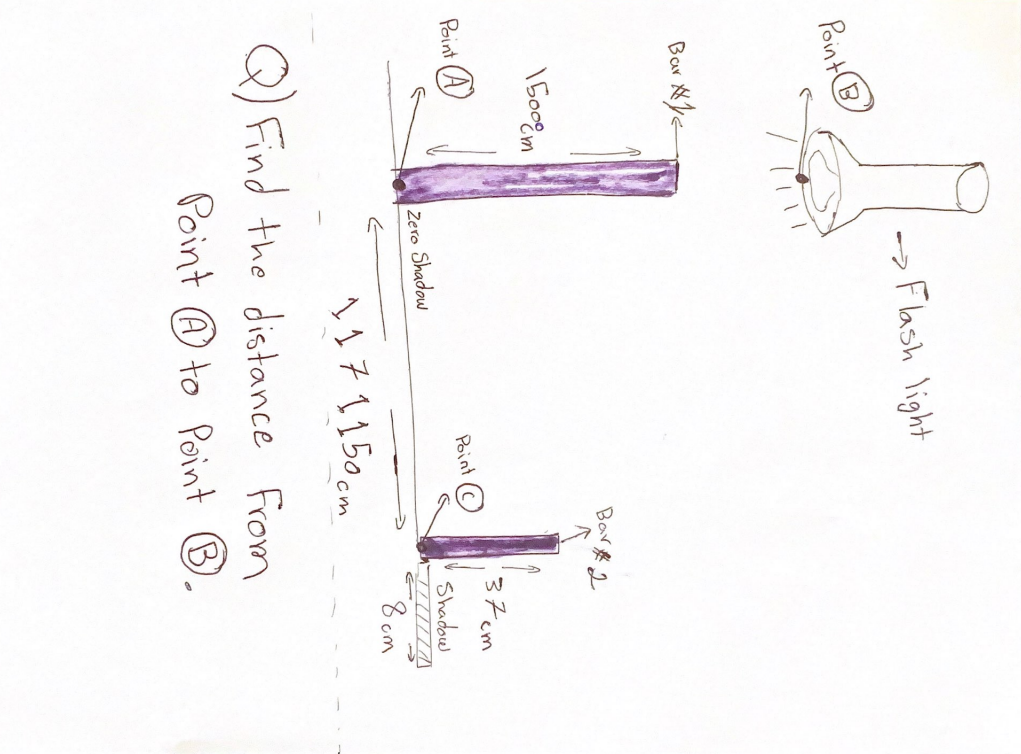 Flash light
Point B
Bar #1
1500 cm
Bar #2
Point A
Zero Shadow
Point C
37 cm
Shadow
8 cm
1,171,150 cm
Q) Find the distance from
Point A to Point B.